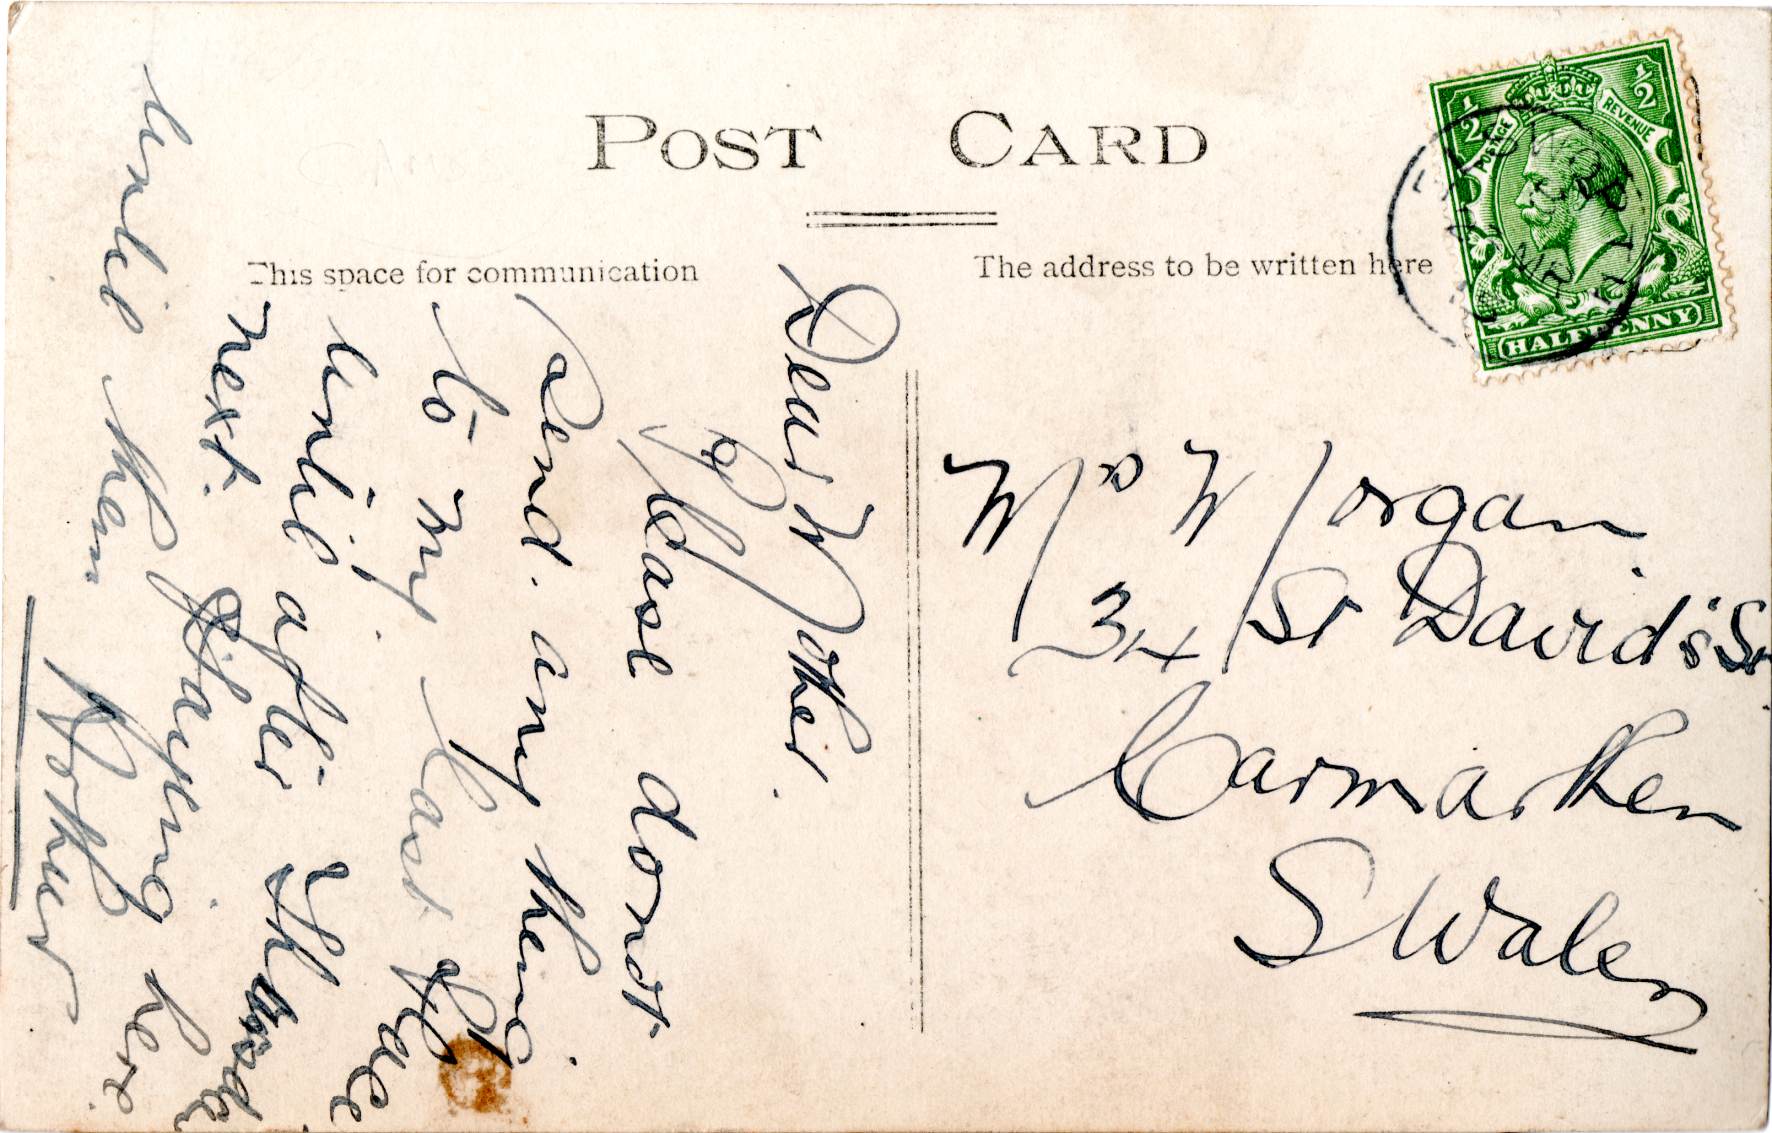 POST CARD
This space for communication
The address to be written here
1/2 1/2
POSTAGE REVENUE
HALFPENNY
Dear Mother.
Please dont
Send. any thing
to my last Place
until after Thursday
next. Staying here
until then
Mrs Morgan
34 St David's St
Carmarthen
S Wales